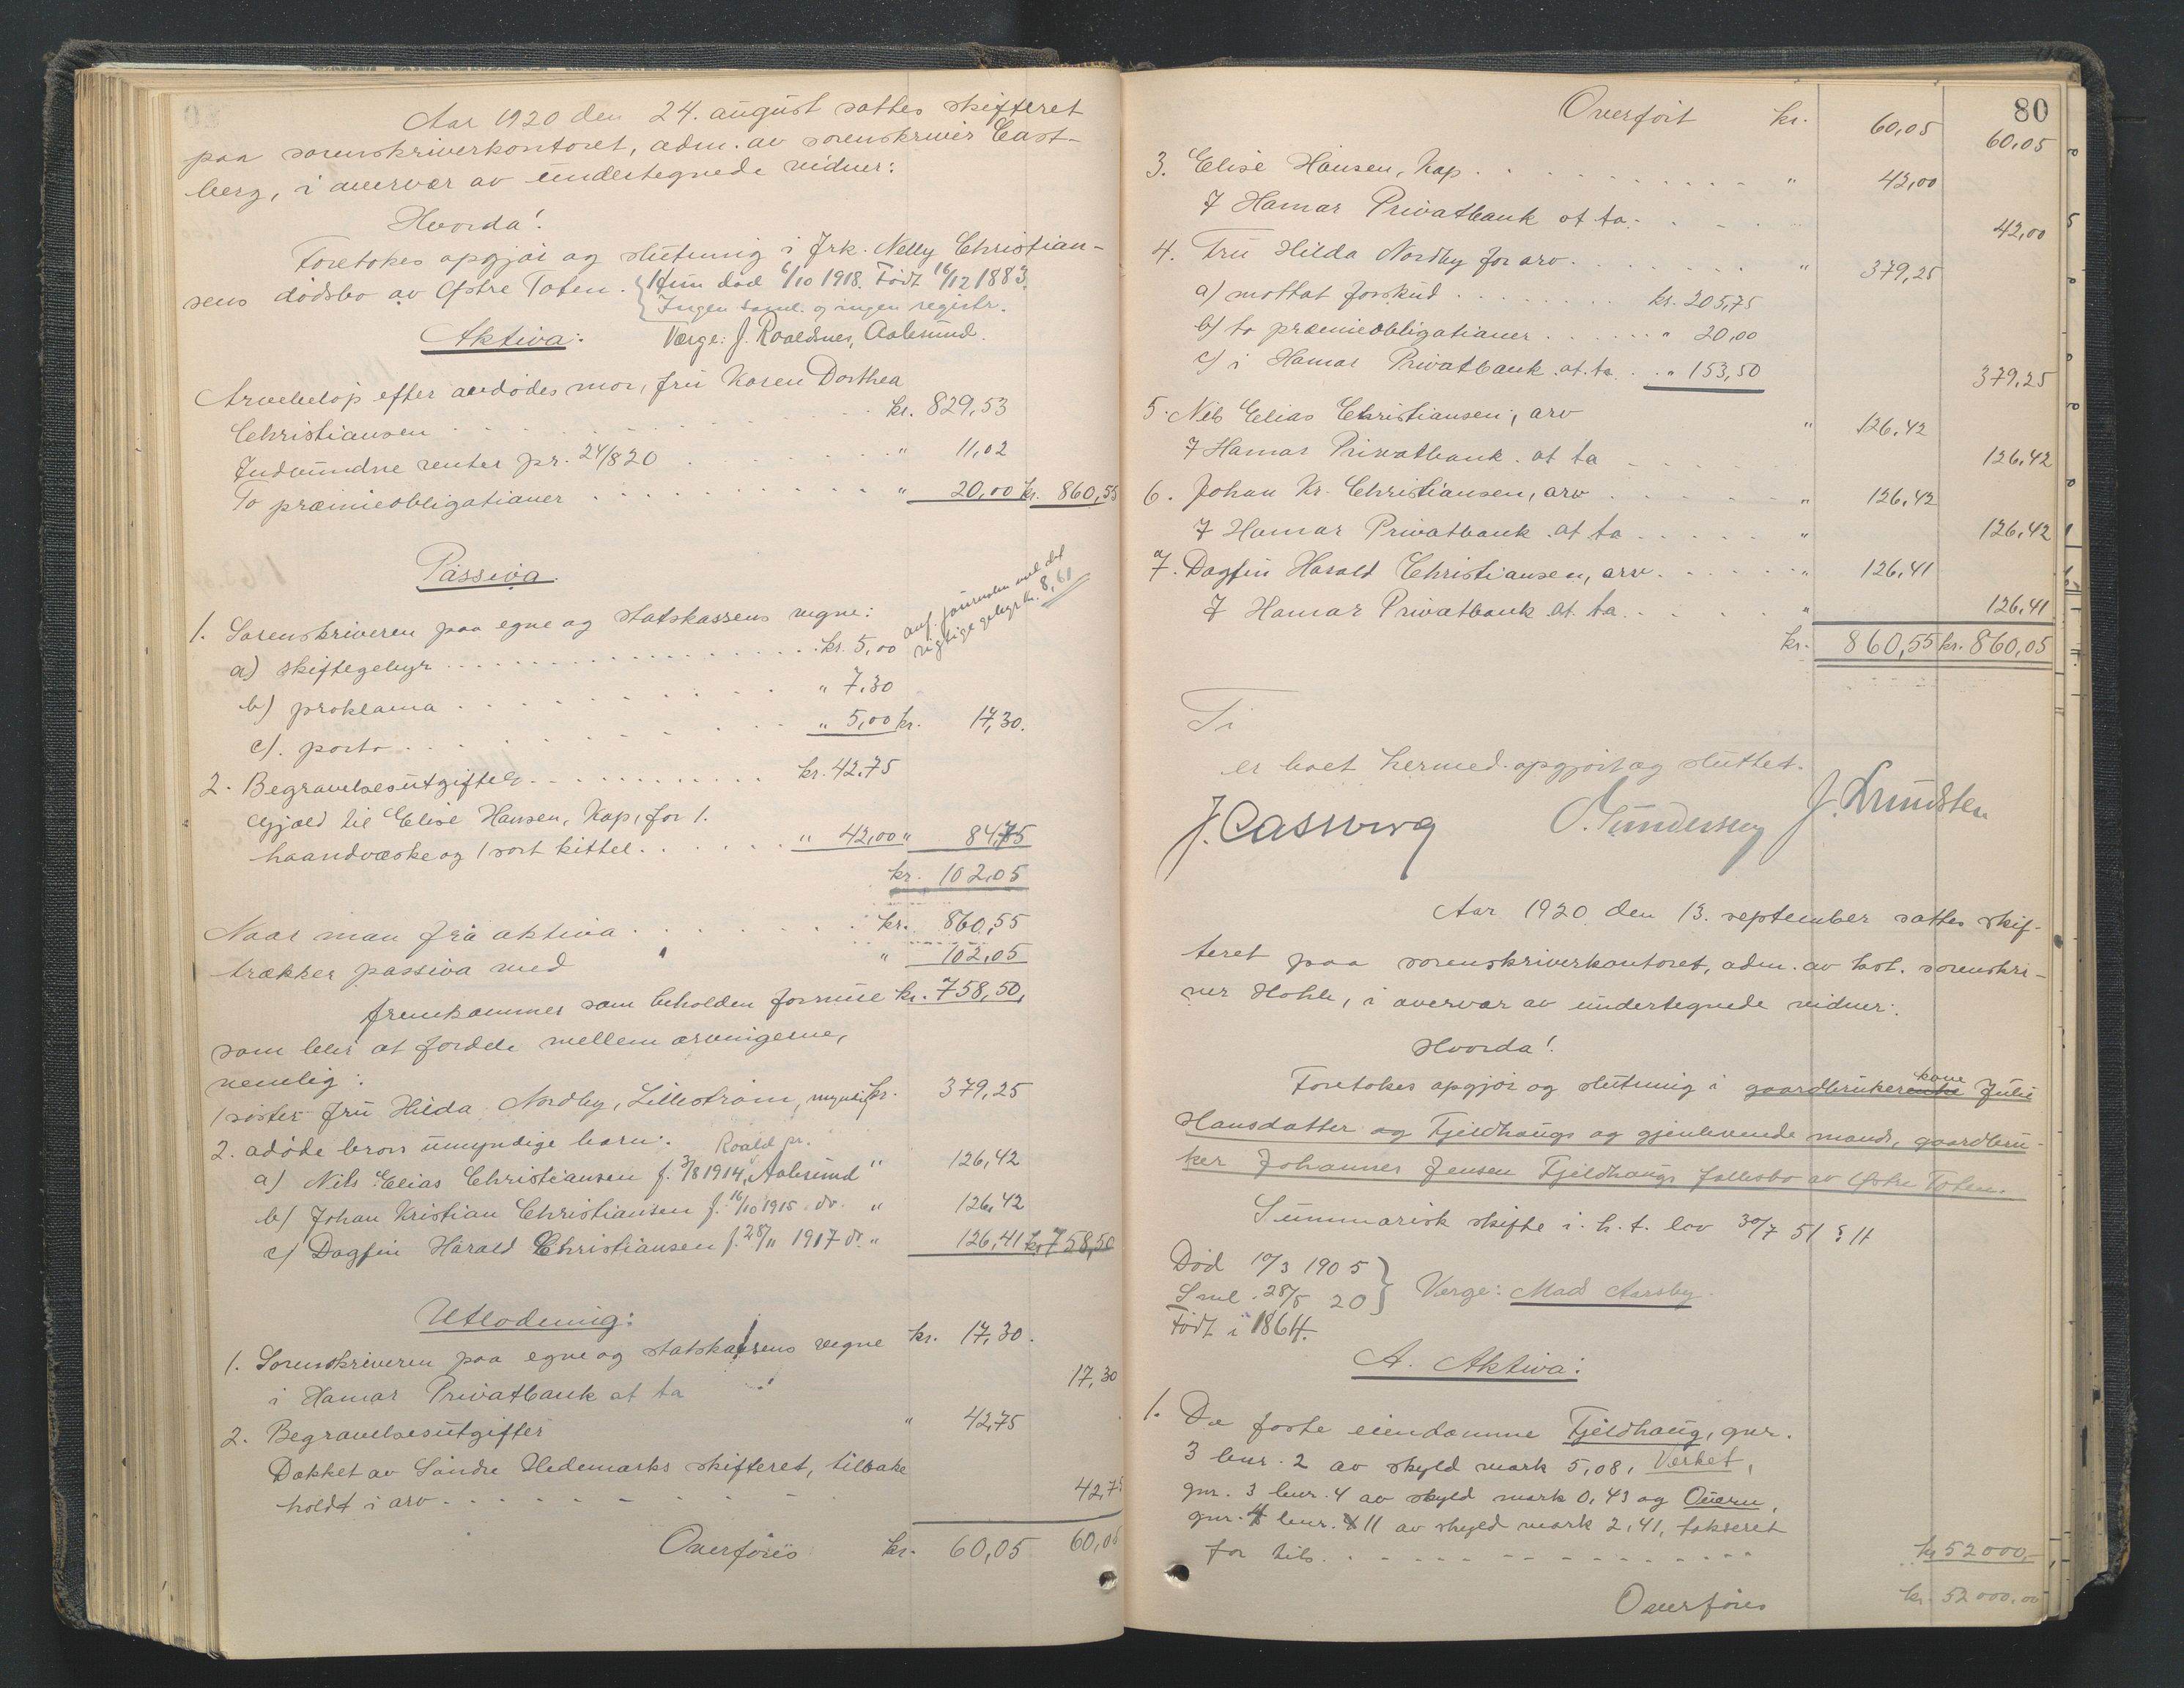 Aar 1920 den 24. august sattes skifteret
paa sorenskriverkontoret, adm. av sorenskriver Cast-
berg, i overvær av undertegnede vidner:
Hvorda!
Foretokes opgjør og slutning i frk. Nelly Christian-
sens dødsbo av Østre Toten. {Hun död 6/10 1918. Födt 16/12 1883.
Ingen saml. og ingen registr.
Aktiva: Værge: J. Roaldsnes, Aalesund.
Arvebeløp efter avdødes mor, fru Karen Dorthea
Christiansen kr. 829,53
Indvundne renter pr. 24/8 20 " 11,02
To præmieobligationer " 20,00 kr. 860,55
Passiva.
1. Sorenskriveren paa egne og statskassens vegne:
a) skiftegebyr kr. 5,00
anf. journalen ved det
rigtige gebyr kr. 8,61
b) proklama " 7.30
c). porto " 5,00 kr. 17,30.
2. Begravelsesutgifter kr. 42.75
Gjæld til Elise Hansen, Kap, for 1.
haandvæske og 1 sort kittel " 42,00 " 84,75
kr. 102,05
Naar man fra aktiva kr. 860,55
trækker passiva med " 102,05
fremkommer som beholden formue kr. 758,50,
som blir at fordele mellem arvingerne,
nemlig:
1 søster fru Hilda Nordby, Lillestrøm, myndig kr. 379,25
2. adøde brors umyndige barn:
Roald pr.
a) Nils Elias Christiansen f. 3/8 1914, Aalesund " 126,42
b) Johan Kristian Christiansen f. 16/10 1915 do. " 126,42
c) Dagfin Harald Christiansen f. 28/11 1917 do. " 126,41 kr. 758,50
Utlodning:
1. Sorenskriveren paa egne og statskassens vegne kr. 17,30.
i Hamar Privatbank at ta 17,30
2. Begravelsesutgifter " 42,75
Dækket av Søndre Hedemarks skifteret, tilbake
holdt i arv 42,75
Overføres kr. 60,05 60,05
80
Overført kr. 60,05 60,05
3. Elise Hansen, Kap " 42,00
I Hamar Privatbank at ta 42,00
4. Fru Hilda Nordby for arv " 379,25
a) mottat forskud kr. 205,75
b) to præmieobligationer " 20,00
c) i Hamar Privatbank at ta " 153,50 379,25
5. Nils Elias Christiansen, arv " 126,42
I Hamar Privatbank at ta 126,42
6. Johan Kr. Christiansen, arv " 126,42
I Hamar Privatbank at ta " 126,42
7. Dagfin Harald Christiansen, arv " 126,41
I Hamar Privatbank at ta " 126,41
kr. 860,55 kr. 860,05
Ti
er boet hermed opgjort og sluttet.
J. Castberg O. Gundersen J. Lundsten
Aar 1920 den 13. september sattes skif-
teret paa sorenskriverkontoret, adm. av kst. sorenskri-
ver Hohle, i overvær av undertegnede vidner:
Hvorda!
kone
Foretokes opgjør og slutning i gaardbrukerenke Julie
Hansdatter og Fjeldhaugs og gjenlevende mands, gaardbru-
ker Johannes Jensen Fjeldhaugs fællesbo av Østre Toten.
Summarisk skifte i h. t. lov 30/7 51 § 11
Död 10/3 1905
Sml. 28/5 20 } Verge: Mads Aarsby.
Födt i 1864.
A. Aktiva:
1. De faste eiendomme Fjeldhaug, gnr.
3 bnr. 2 av skyld mark 5,08, Verket,
gnr. 3 bnr. 4 av skyld mark 0,43 og Øvern,
gnr. 4 bnr. 11 av skyld mark 2,41, takseret
for tils. kr. 52000,-
Overføres kr. 52000,00